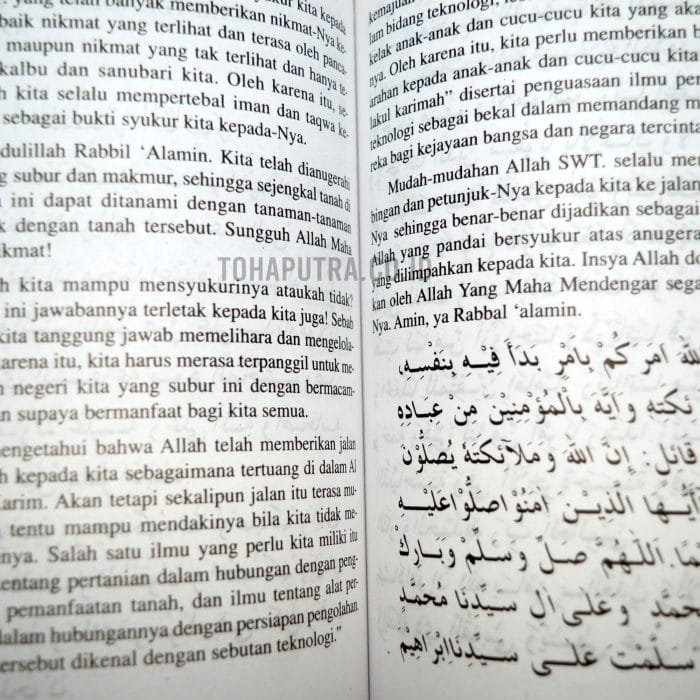 yang telah banyak memberikan nikmat-Nya ke-
baik nikmat yang terlihat dan terasa oleh panca-
maupun nikmat yang tak terlihat dan hanya te-
kalbu dan sanubari kita. Oleh karena itu, se-
h kita selalu mempertebal iman dan taqwa ke-
sebagai bukti syukur kita kepada-Nya.
dulillah Rabbil ‘Alamin. Kita telah dianugerahi
g subur dan makmur, sehingga sejengkal tanah di
ini dapat ditanami dengan tanaman-tanaman
k dengan tanah tersebut. Sungguh Allah Maha
ikmat!
h kita mampu mensyukurinya ataukah tidak?
ini jawabannya terletak kepada kita juga! Sebab
kita tanggung jawab memelihara dan mengelola-
karena itu, kita harus merasa terpanggil untuk me-
n negeri kita yang subur ini dengan bermacam-
n supaya bermanfaat bagi kita semua.
engetahui bahwa Allah telah memberikan jalan
h kepada kita sebagaimana tertuang di dalam Al
arim. Akan tetapi sekalipun jalan itu terasa mu-
tentu mampu mendakinya bila kita tidak me-
nya. Salah satu ilmu yang perlu kita miliki itu
entang pertanian dalam hubungan dengan peng-
pemanfaatan tanah, dan ilmu tentang alat per-
dalam hubungannya dengan persiapan pengolahan
ersebut dikenal dengan sebutan teknologi.”
kemajuan
lam bidang teknologi,
kelak anak-anak dan cucu-cucu kita yang aka
nya. Oleh karena itu, kita perlu memberikan b
arahan kepada anak-anak dan cucu-cucu kita
lakul karimah” disertai penguasaan ilmu pe
teknologi sebagai bekal dalam memandang m
reka bagi kejayaan bangsa dan negara tercinta
Mudah-mudahan Allah SWT. selalu me
bingan dan petunjuk-Nya kepada kita ke jalan
Nya sehingga benar-benar dijadikan sebagai
Allah yang pandai bersyukur atas anugera
yang dilimpahkan kepada kita. Insya Allah do
kan oleh Allah Yang Maha Mendengar sega
Nya. Amin, ya Rabbal ‘alamin.
الله أمركم بأمر بدأ فيه بنفسه،
ئكته وأيه بالمؤمنين من عباده
قائل: إن الله وملائكته يصلون
أيها الذين آمنوا صلوا عليه
ما. اللهم صل وسلم وبارك
محمد وعلى آل سيدنا محمد
سلمت على سيدنا ابراهيم
TOHAPUTRA.CO.ID